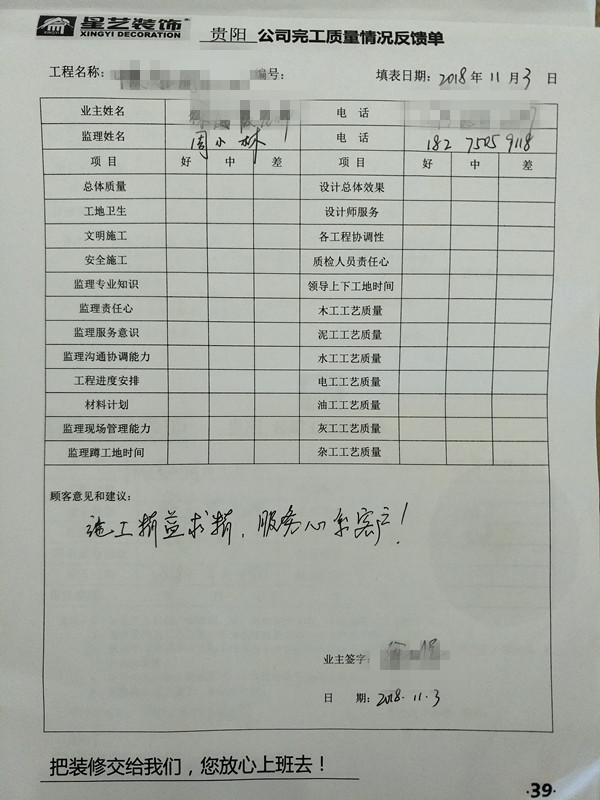 星艺装饰®
XINGYI DECORATION
贵阳 公司完工质量情况反馈单
工程名称: 编号: 填表日期: 2018年11月3日
业主姓名 电话
监理姓名 周小林 电话 182 7505 9118
项目 好 中 差 项目 好 中 差
总体质量 设计总体效果
工地卫生 设计师服务
文明施工 各工程协调性
安全施工 质检人员责任心
监理专业知识 领导上下工地时间
监理责任心 木工工艺质量
监理服务意识 泥工工艺质量
监理沟通协调能力 水工工艺质量
工程进度安排 电工工艺质量
材料计划 油工工艺质量
监理现场管理能力 灰工工艺质量
监理蹲工地时间 杂工工艺质量
顾客意见和建议:
施工精益求精，服务心系客户！
业主签字:
日 期: 2018.11.3
把装修交给我们，您放心上班去！
·39·